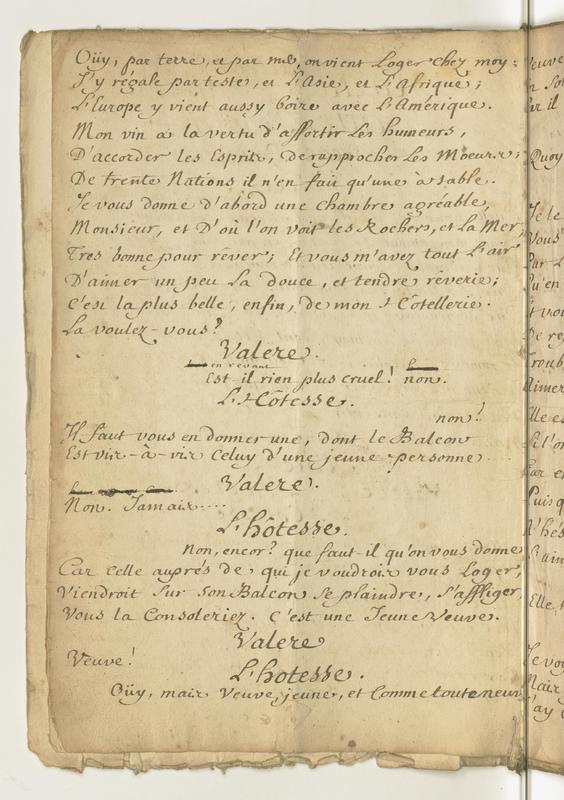 Oüy, par terre, et par mer, on vient Loger chez moy :
J'y régale par teste, et L'Asie, et L'Afrique ;
L'Europe y vient aussy boire avec L'Amérique.
Mon vin a la vertu d'assortir Les humeurs,
D'accorder les Esprits, de rapprocher Les Moeurs ;
De trente Nations il n'en fait qu'une à table.
Je vous donne d'abord une chambre agréable,
Monsieur, et D'où l'on voit les Rochers, et La Mer,
Tres bonne pour rêver ; Et vous m'avez tout L'air
D'aimer un peu La douce, et tendre rêverie ;
C'est la plus belle, enfin, de mon Hôtellerie.
La voulez-vous?
Valere.
en revant
Est-il rien plus cruel! non.
L'Hôtesse.
non?
Il faut vous en donner une, dont le Balcon
Est vis-à-vis Celuy d'une jeune personne
Valere.
Non. Jamais....
L'hôtesse.
Non, encor? que faut-il qu'on vous donne
Car Celle auprés de qui je voudrois vous Loger,
Viendroit Sur Son Balcon Se plaindre, S'affliger,
Vous la Consoleriez. C'est une Jeune Veuve.
Valere
Veuve!
L'hôtesse.
Oüy, mais Veuve, jeune, et Comme toute neuve
Veuve
Quoy
Elle